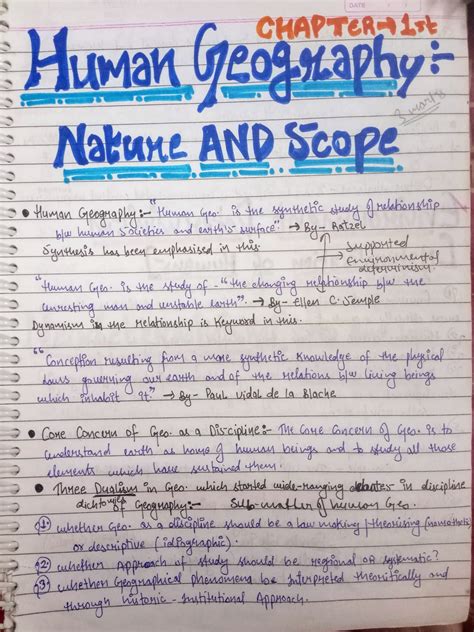 DATE
CHAPTER → 1st
Human Geography:-
Nature AND Scope
• Human Geography:- "Human Geo. is the synthetic study of relationship
b/w human societies and earth's surface." → By - Ratzel
Synthesis has been emphasised in this.
supported
environmental
determinism.
"Human Geo. is the study of - "the changing relationship b/w the
unresting man and unstable earth". → By - Ellen C. Semple
Dynamism in the relationship is Keyword in this.
"Conception resulting from a more synthetic knowledge of the physical
laws governing our earth and of the relations b/w living beings
which inhabit it" → By - Paul Vidal de la Blache
• Core Concern of Geo. as a Discipline:- The Core Concern of Geo. is to
understand earth as home of human beings and to study all those
elements which have sustained them.
• Three Dualism in Geo. which started wide-ranging debates in discipline
of Geography:- Sub-matter of human Geo.
① whether Geo. as a discipline should be a law making / theorising
or descriptive (idiographic).
② whether Approach of study should be regional or systematic?
③ whether Geographical phenomena be interpreted theoritically and
through historic-institutional Approach.